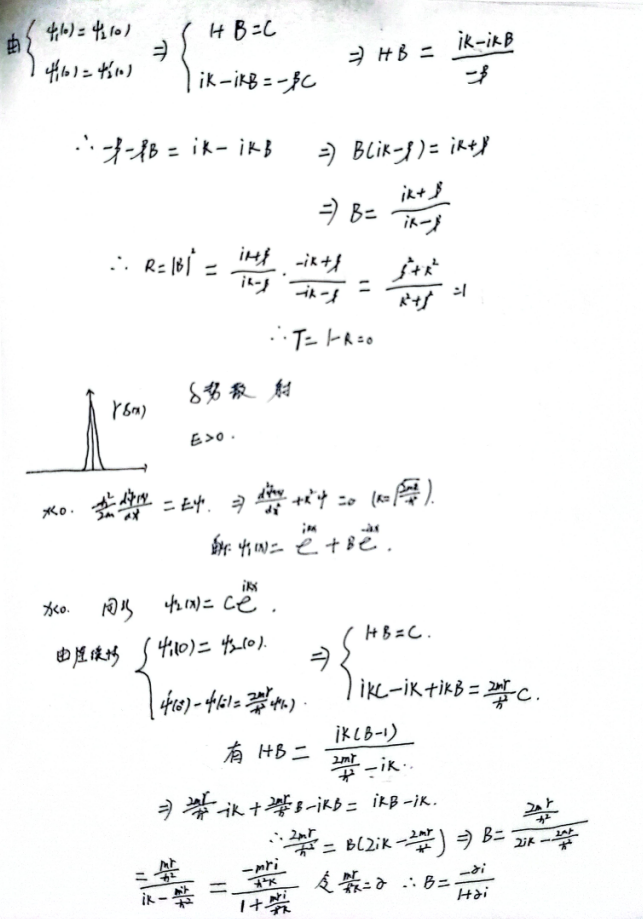 由{ ψ₁(0)=ψ₂(0) ⇒ { 1+B=C ⇒ 1+B = (ik-ikB)/(-β)
ψ₁'(0)=ψ₂'(0) ik-ikB=-βC
∴ -β-βB = ik-ikB ⇒ B(ik-β)=ik+β
⇒ B= (ik+β)/(ik-β)
∴ R=|B|² = (ik+β)/(ik-β)·(-ik+β)/(-ik-β) = (β²+k²)/(k²+β²) =1
∴T=1-R=0
γδ(x) δ势散射
E>0.
x<0. -ħ²/2m d²ψ(x)/dx² = Eψ. ⇒ d²ψ(x)/dx² +k²ψ=0 (k=√(2mE/ħ²)).
解: ψ₁(x)= e^{ikx} + Be^{-ikx}.
ψ₂(x)= Ce^{ikx}.
由 { ψ₁(0)=ψ₂(0). ⇒ { 1+B=C.
ψ'(0⁺)-ψ'(0⁻)=2mγ/ħ² ψ(0). ikC-ik+ikB=2mγ/ħ² C.
有 1+B= ik(B-1)/(2mγ/ħ² -ik)
⇒ 2mγ/ħ² -ik+2mγ/ħ² B-ikB= ikB-ik.
∴ 2mγ/ħ² = B(2ik-2mγ/ħ²) ⇒ B= (2mγ/ħ²)/(2ik-2mγ/ħ²)
= (mγ/ħ²)/(ik-mγ/ħ²) = (-mγi/ħ²k)/(1+mγi/ħ²k) 令 mγ/ħ²k=∂ ∴B= -∂i/(1+∂i)